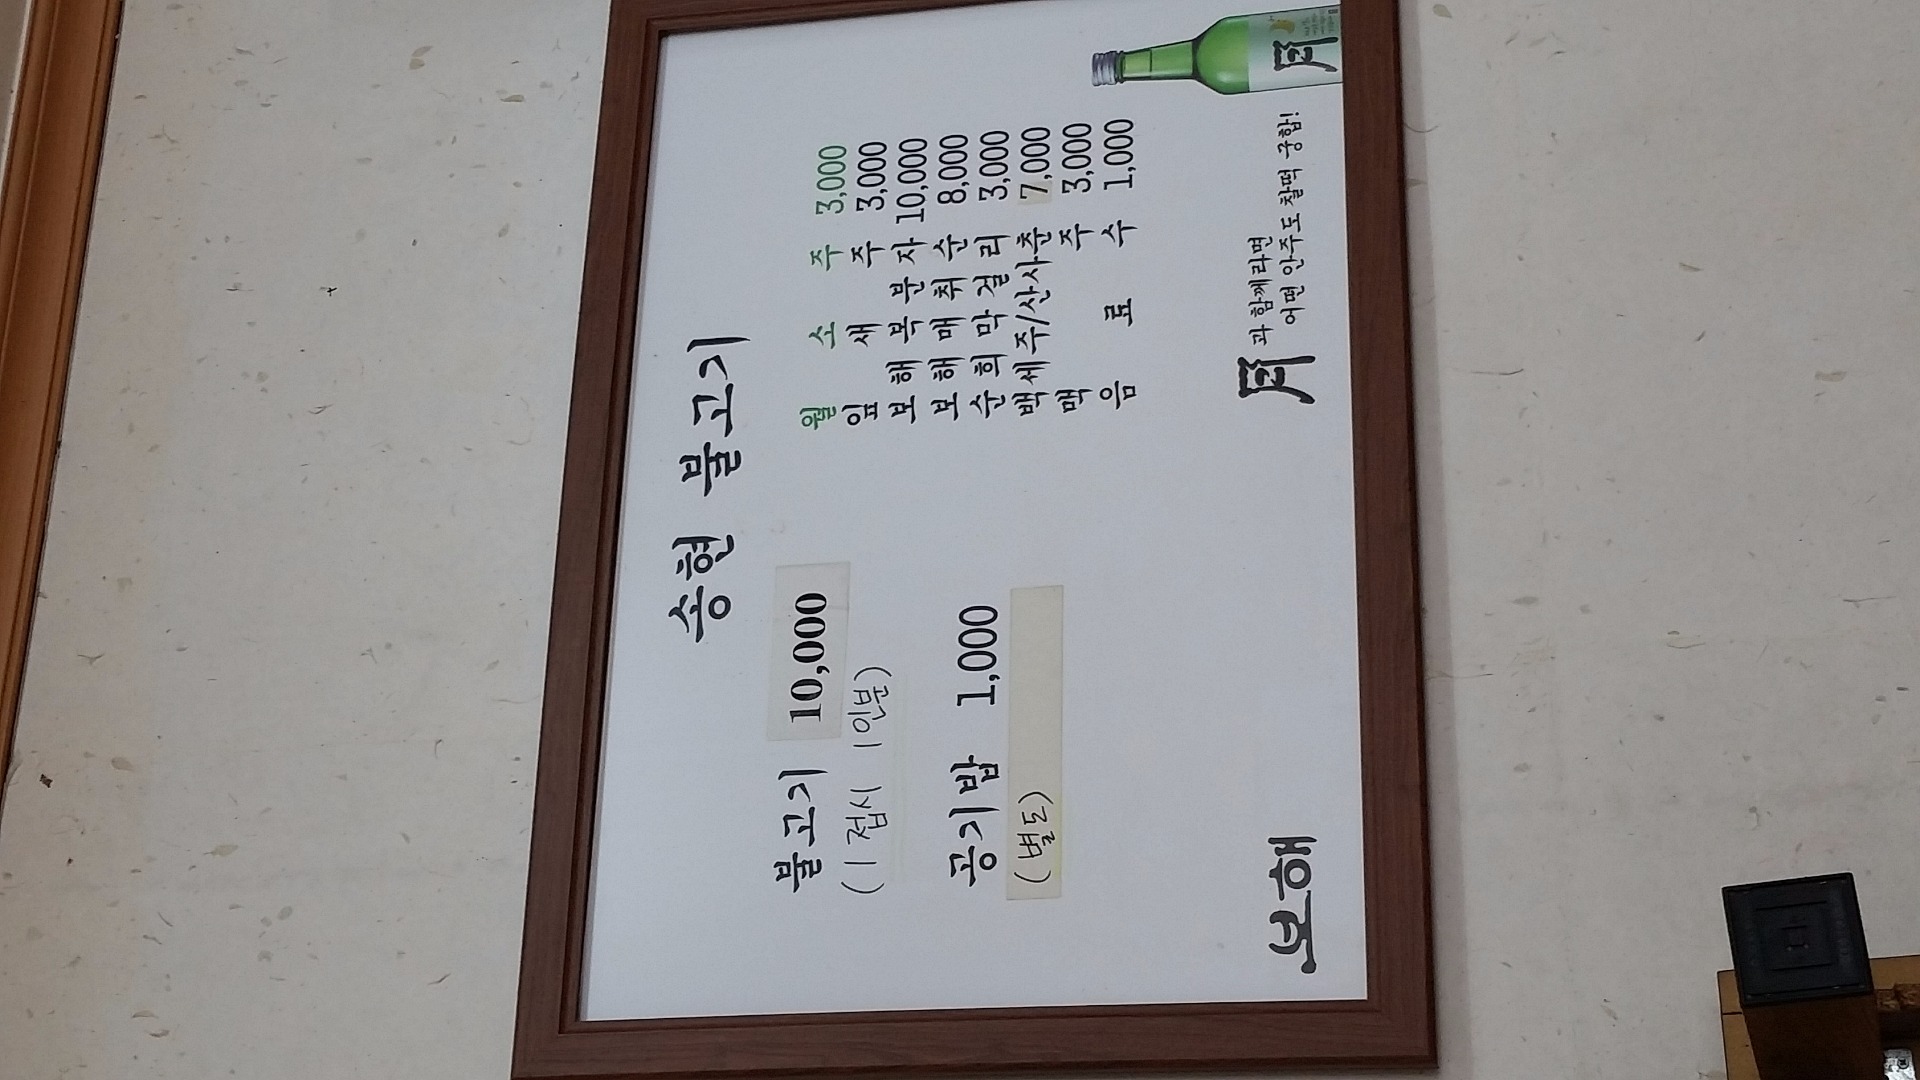 송현 불고기
불고기 10,000
(1접시 1인분)
공기밥 1,000
(별도)
월 소 주 3,000
잎 새 주 3,000
보 해 복 분 자 10,000
보 해 매 취 순 8,000
순 희 막 걸 리 3,000
백세주/산사춘 7,000
맥 주 3,000
음 료 수 1,000
보해
과 함께라면
어떤 안주도 찰떡 궁합!